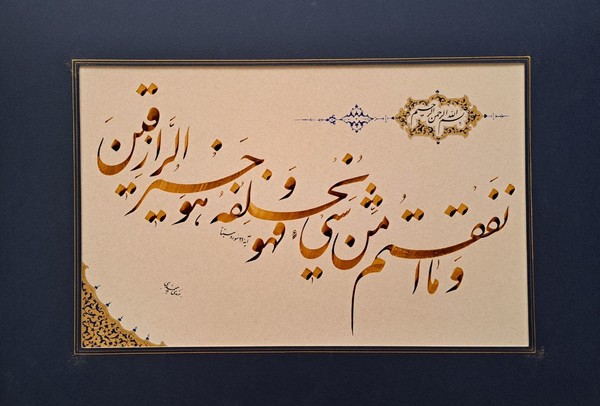 بسم الله الرحمن الرحیم
وَ ما اَنفَقتُم مِّن شَیءٍ فَهُوَ یُخلِفُهُ وَ هُوَ خَیرُ الرَّازِقینَ
آیه ۳۹ سوره سبأ